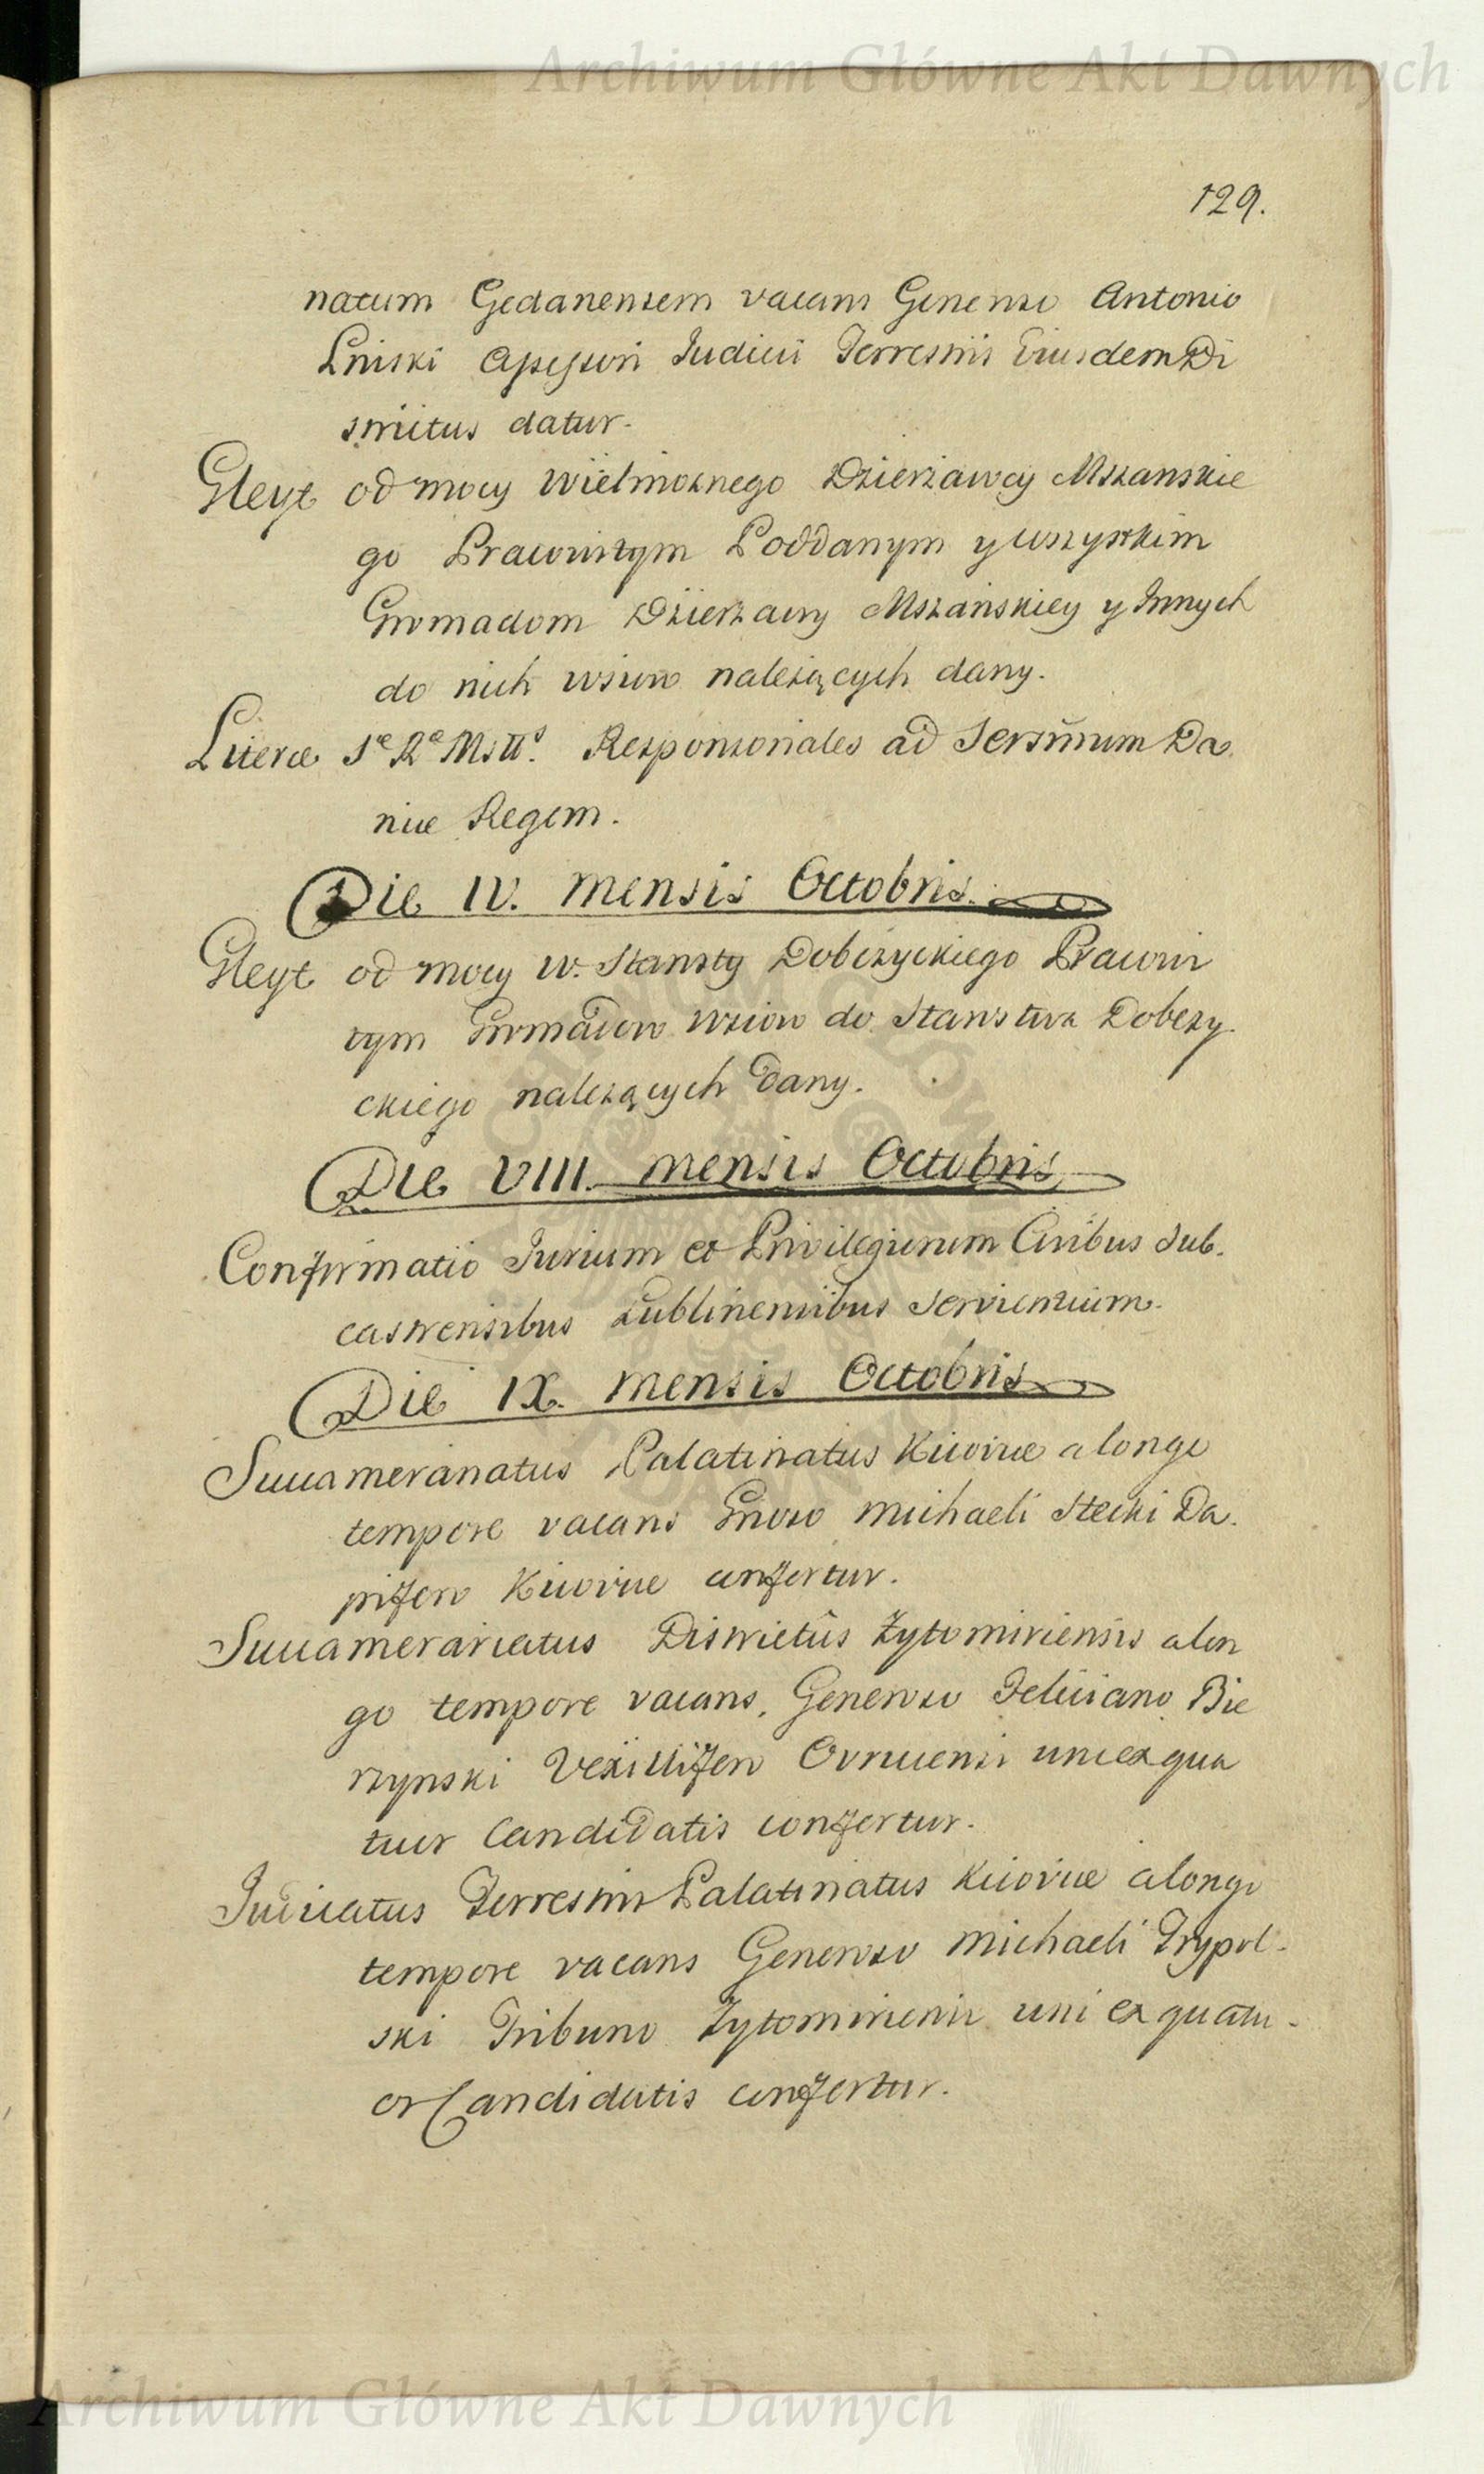 Archiwum Główne Akt Dawnych
129.
natum Gedanensem vacans Generoso Antonio
Lniski Assessori Judicii Terrestris Eiusdem Di
strictus datur.
Gleyt od mocy Wielmożnego Dzierżawcy Mszanskie
go Pracowitym Poddanym y wszystkim
Gromadom Dzierżawy Mszańskiey y Innych
do nich wsiow należących dany.
Literæ Sæ Ræ Mstts. Responsoriales ad Sersm̃um Da
niæ Regem.
Die IV. mensis Octobris.
Gleyt od mocy W. Starosty Dobczyckiego Pracowi
tym Gromadom wsiow do Starostwa Dobczy
ckiego należących dany.
Die VIII. mensis Octobris
Confirmatio Jurium et Privilegiorum Civibus Sub.
castrensibus Lublinensibus Servientium.
Die IX. mensis Octobris
Succameranatus Palatinatus Kiioviæ a longo
tempore vacans Gnoso Michaeli Stecki Da.
pifero Kiioviæ confertur.
Succamerariatus Districtûs Zytomiriensis a lon
go tempore vacans, Generoso Feliciano Bie
rzynski Vexillifero Ovrucensi uni ex qua
tuor Candidatis confertur.
Judicatus Terrestris Palatinatus Kiioviæ a longo
tempore vacans Generoso Michaeli Trypol.
ski Tribuno Zytomiriensi uni ex quatu.
or Candidatis confertur.
Archiwum Główne Akt Dawnych